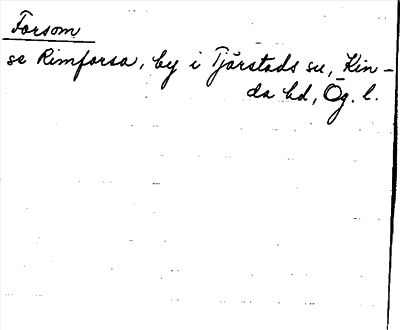 Forsom
se Rimforsa, by i Tjärstads sn, Kin-
da hd, Ög. l.